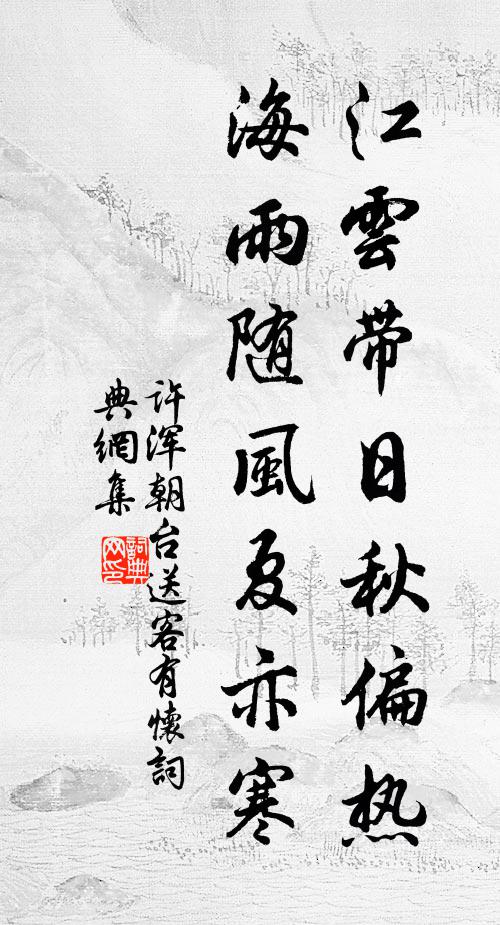 江雲帶日秋偏热
海雨随風夏亦寒
许浑朝台送客有懷詞
典網集
詞典
网印